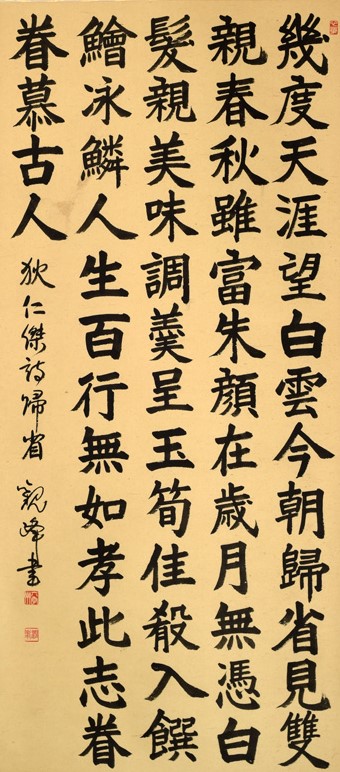 幾度天涯望白雲今朝歸省見雙
親春秋雖富朱顏在歲月無憑白
髮親美味調羹呈玉筍佳殽入饌
鱠冰鱗人生百行無如孝此志眷
眷慕古人
狄仁傑詩歸省 觀峰書